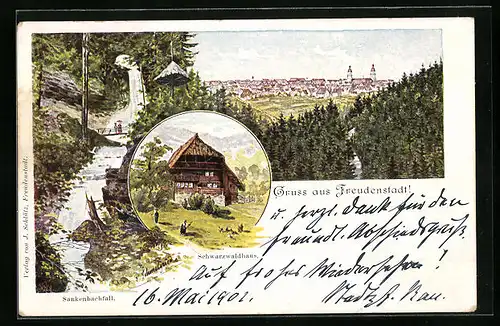 Verlag von J. Schlätz, Freudenstadt.
Gruss aus Freudenstadt!
u. herzl. Dank für den
freundl. Abschiedsgruß.
Schwarzwaldhaus.
Auf frohes Wiedersehen!
Sankenbachfall.
16. Mai 1902.